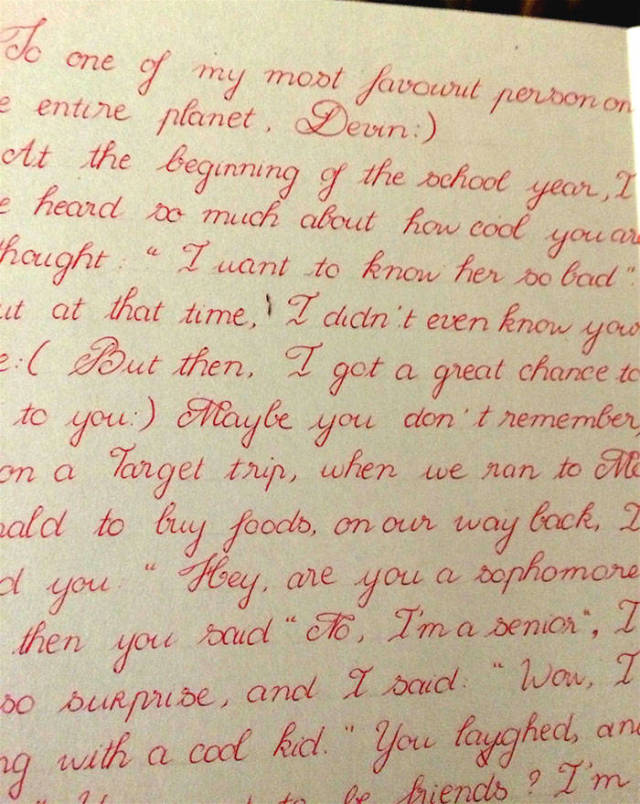 To one of my most favourit person on
e entire planet, Devin:)
At the beginning of the school year, I
e heard so much about how cool you are
hought: "I want to know her so bad".
ut at that time, I didn't even know your
e:( But then, I got a great chance to
to you:) Maybe you don't remember,
on a Target trip, when we ran to Mc
nald to buy foods, on our way back, I
d you: "Hey, are you a sophomore
then you said "No, I'm a senior", I
so surprise, and I said: "Wow, I
ng with a cool kid." You layghed, and
be friends? I'm